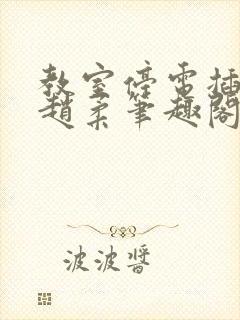 教室停電插
趙柔筆趣閣
波波醬